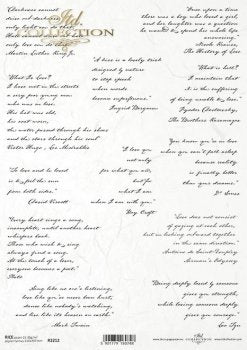 Darkness cannot
drive out darkness;
only light can do that.
Hate cannot drive out hate;
only love can do that.
Martin Luther King Jr.
ITD
COLLECTION
Once upon a time
there was a boy who loved a girl,
and her laughter was a question
he wanted to spend his whole life
answering.
Nicole Krauss,
The History of Love
"A kiss is a lovely trick
designed by nature
to stop speech
when words
become superfluous."
Ingrid Bergman
"What Is Love?
I have met in the streets
a very poor young man
who was in love.
His hat was old,
his coat worn,
the water passed through his shoes
and the stars through his soul"
Victor Hugo, Les Misérables
"What is hell?
I maintain that
it is the suffering
of being unable to love."
Fyodor Dostoevsky,
The Brothers Karamazov
"I love you
not only
for what you are,
but for
what I am
when I am with you."
Roy Croft
You know you're in love
when you can't fall asleep
because reality
is finally better
than your dreams."
Dr. Seuss
"To love and be loved
is to feel the sun
from both sides."
David Viscott
"Every heart sings a song,
incomplete, until another heart
whispers back.
Those who wish to sing
always find a song.
At the touch of a lover,
everyone becomes a poet."
Plato
"Love does not consist
of gazing at each other,
but in looking outward together
in the same direction"
Antoine de Saint-Exupéry,
Airman's Odyssey
Dance like nobody's watching,
Mark Twain
"Being deeply loved by someone
gives you strength,
while loving someone deeply
gives you courage."
Lao Tzu
RICE
R1212
ITD
COLLECTION